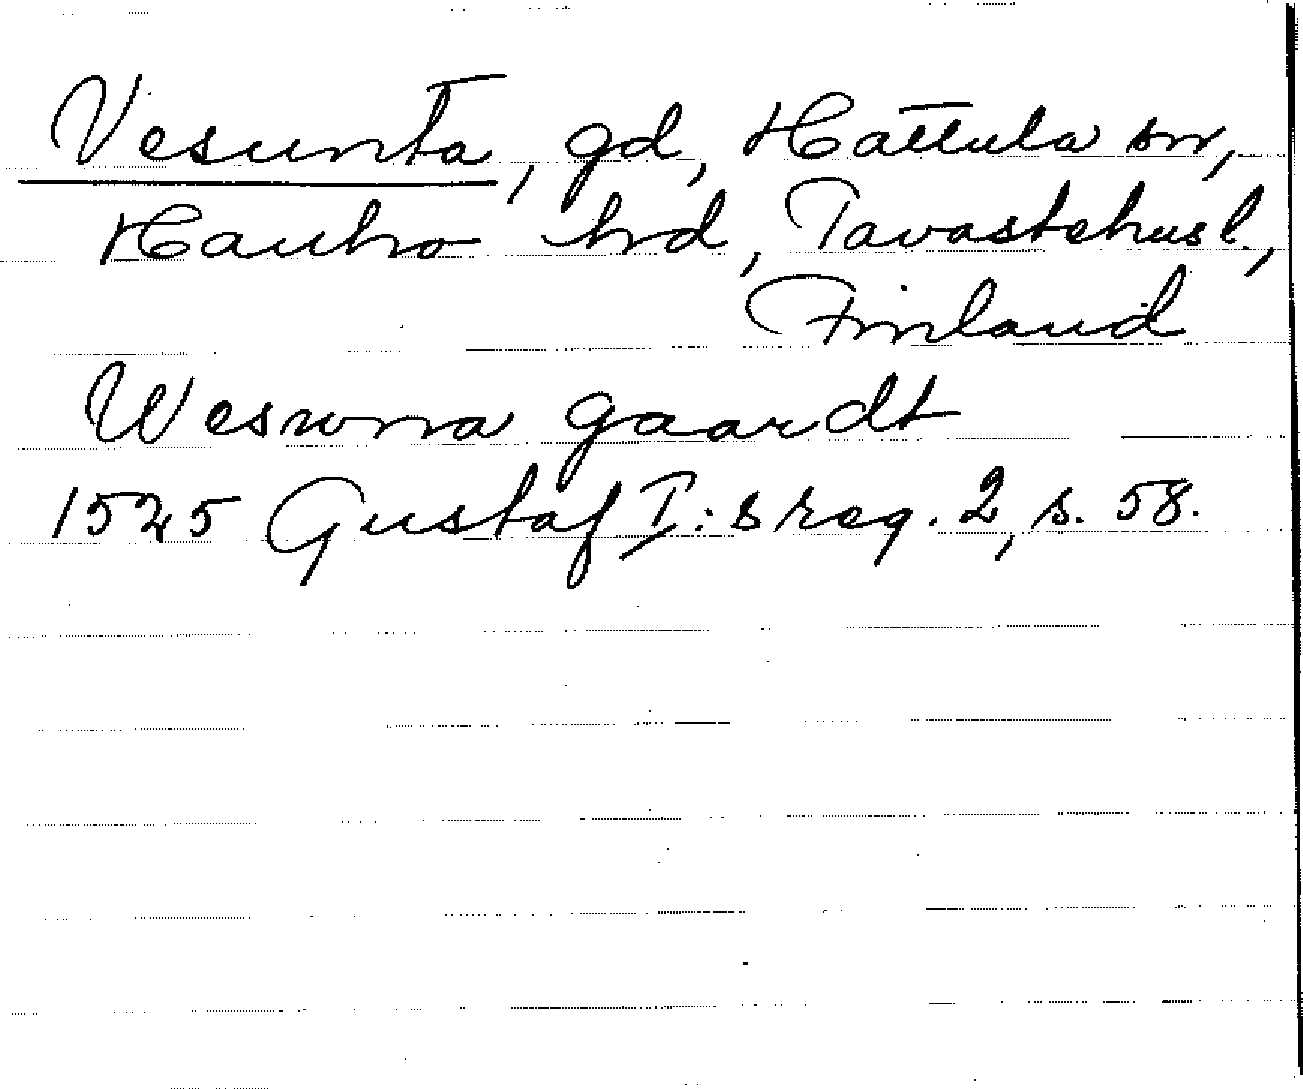 Vesunta, gd, Hattula sn,
Hauho hrd, Tavastehusl.,
Finland
Weswnna gaardt
1525 Gustaf I:s reg. 2, s. 58.